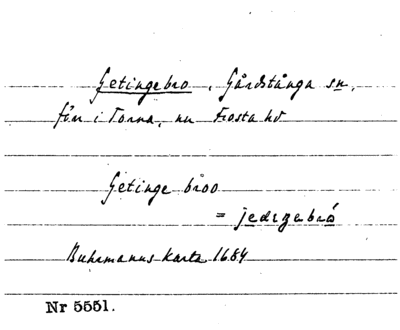 Getingebro, Gårdstånga sn,
förr i Torna, nu Frosta hd
Getinge broo
= jedzgebrå
Buhrmanns karta 1684
Nr 5551.